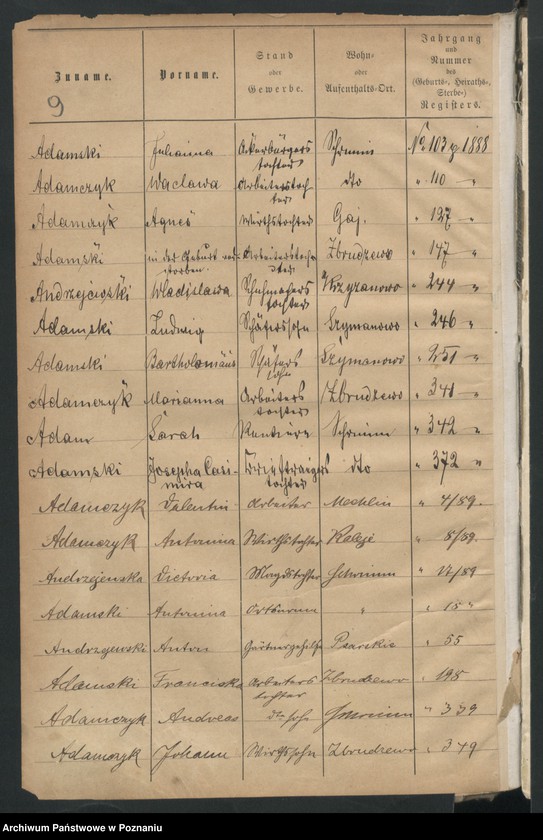 Zuname. Vorname. Stand oder Gewerbe. Wohn- oder Aufenthalts-Ort. Jahrgang und Nummer des (Geburts-, Heiraths-, Sterbe-) Registers.
9
Adamski Julianna Ackerbürgers tochter Schrimm No 103 1888
Adamczyk Waclawa Arbeiterstoch ter dto " 110 "
Adamczyk Agnes Wirthstochter Gaj. " 127 "
Adamski in der Geburt ver storben Arbeiterstoch ter Zbrudzewo " 147 "
Andrzejewski Wladislawa Schuhmachers tochter Krzyzanowo " 244 "
Adamski Ludwig Schäferssohn Szymanowo " 246 "
Adamski Bartholomäus Schäfers sohn Szymanowo " 251 "
Adamczyk Marianna Arbeiters tochter Zbrudzewo " 341 "
Adam Sarah Rentiere Schrimm " 342 "
Adamski Josepha Casi- mira Briefträgers tochter dto " 372 "
Adamczyk Valentin Arbeiter Mechlin " 4/89.
Adamczyk Antonina Wirthstochter " 8/89.
Andrzejewska Victoria Magdstochter Schrimm " /89
Adamski Antonina " " 15 "
Andrzejewski Anton Gärtnergehilfe Psarskie " 55
Adamski Franciska Arbeiters tochter Zbrudzewo " 198
Adamczyk Andreas dto sohn Schrimm " 339
Adamczyk Johann Wirthssohn Zbrudzewo " 349
Archiwum Państwowe w Poznaniu